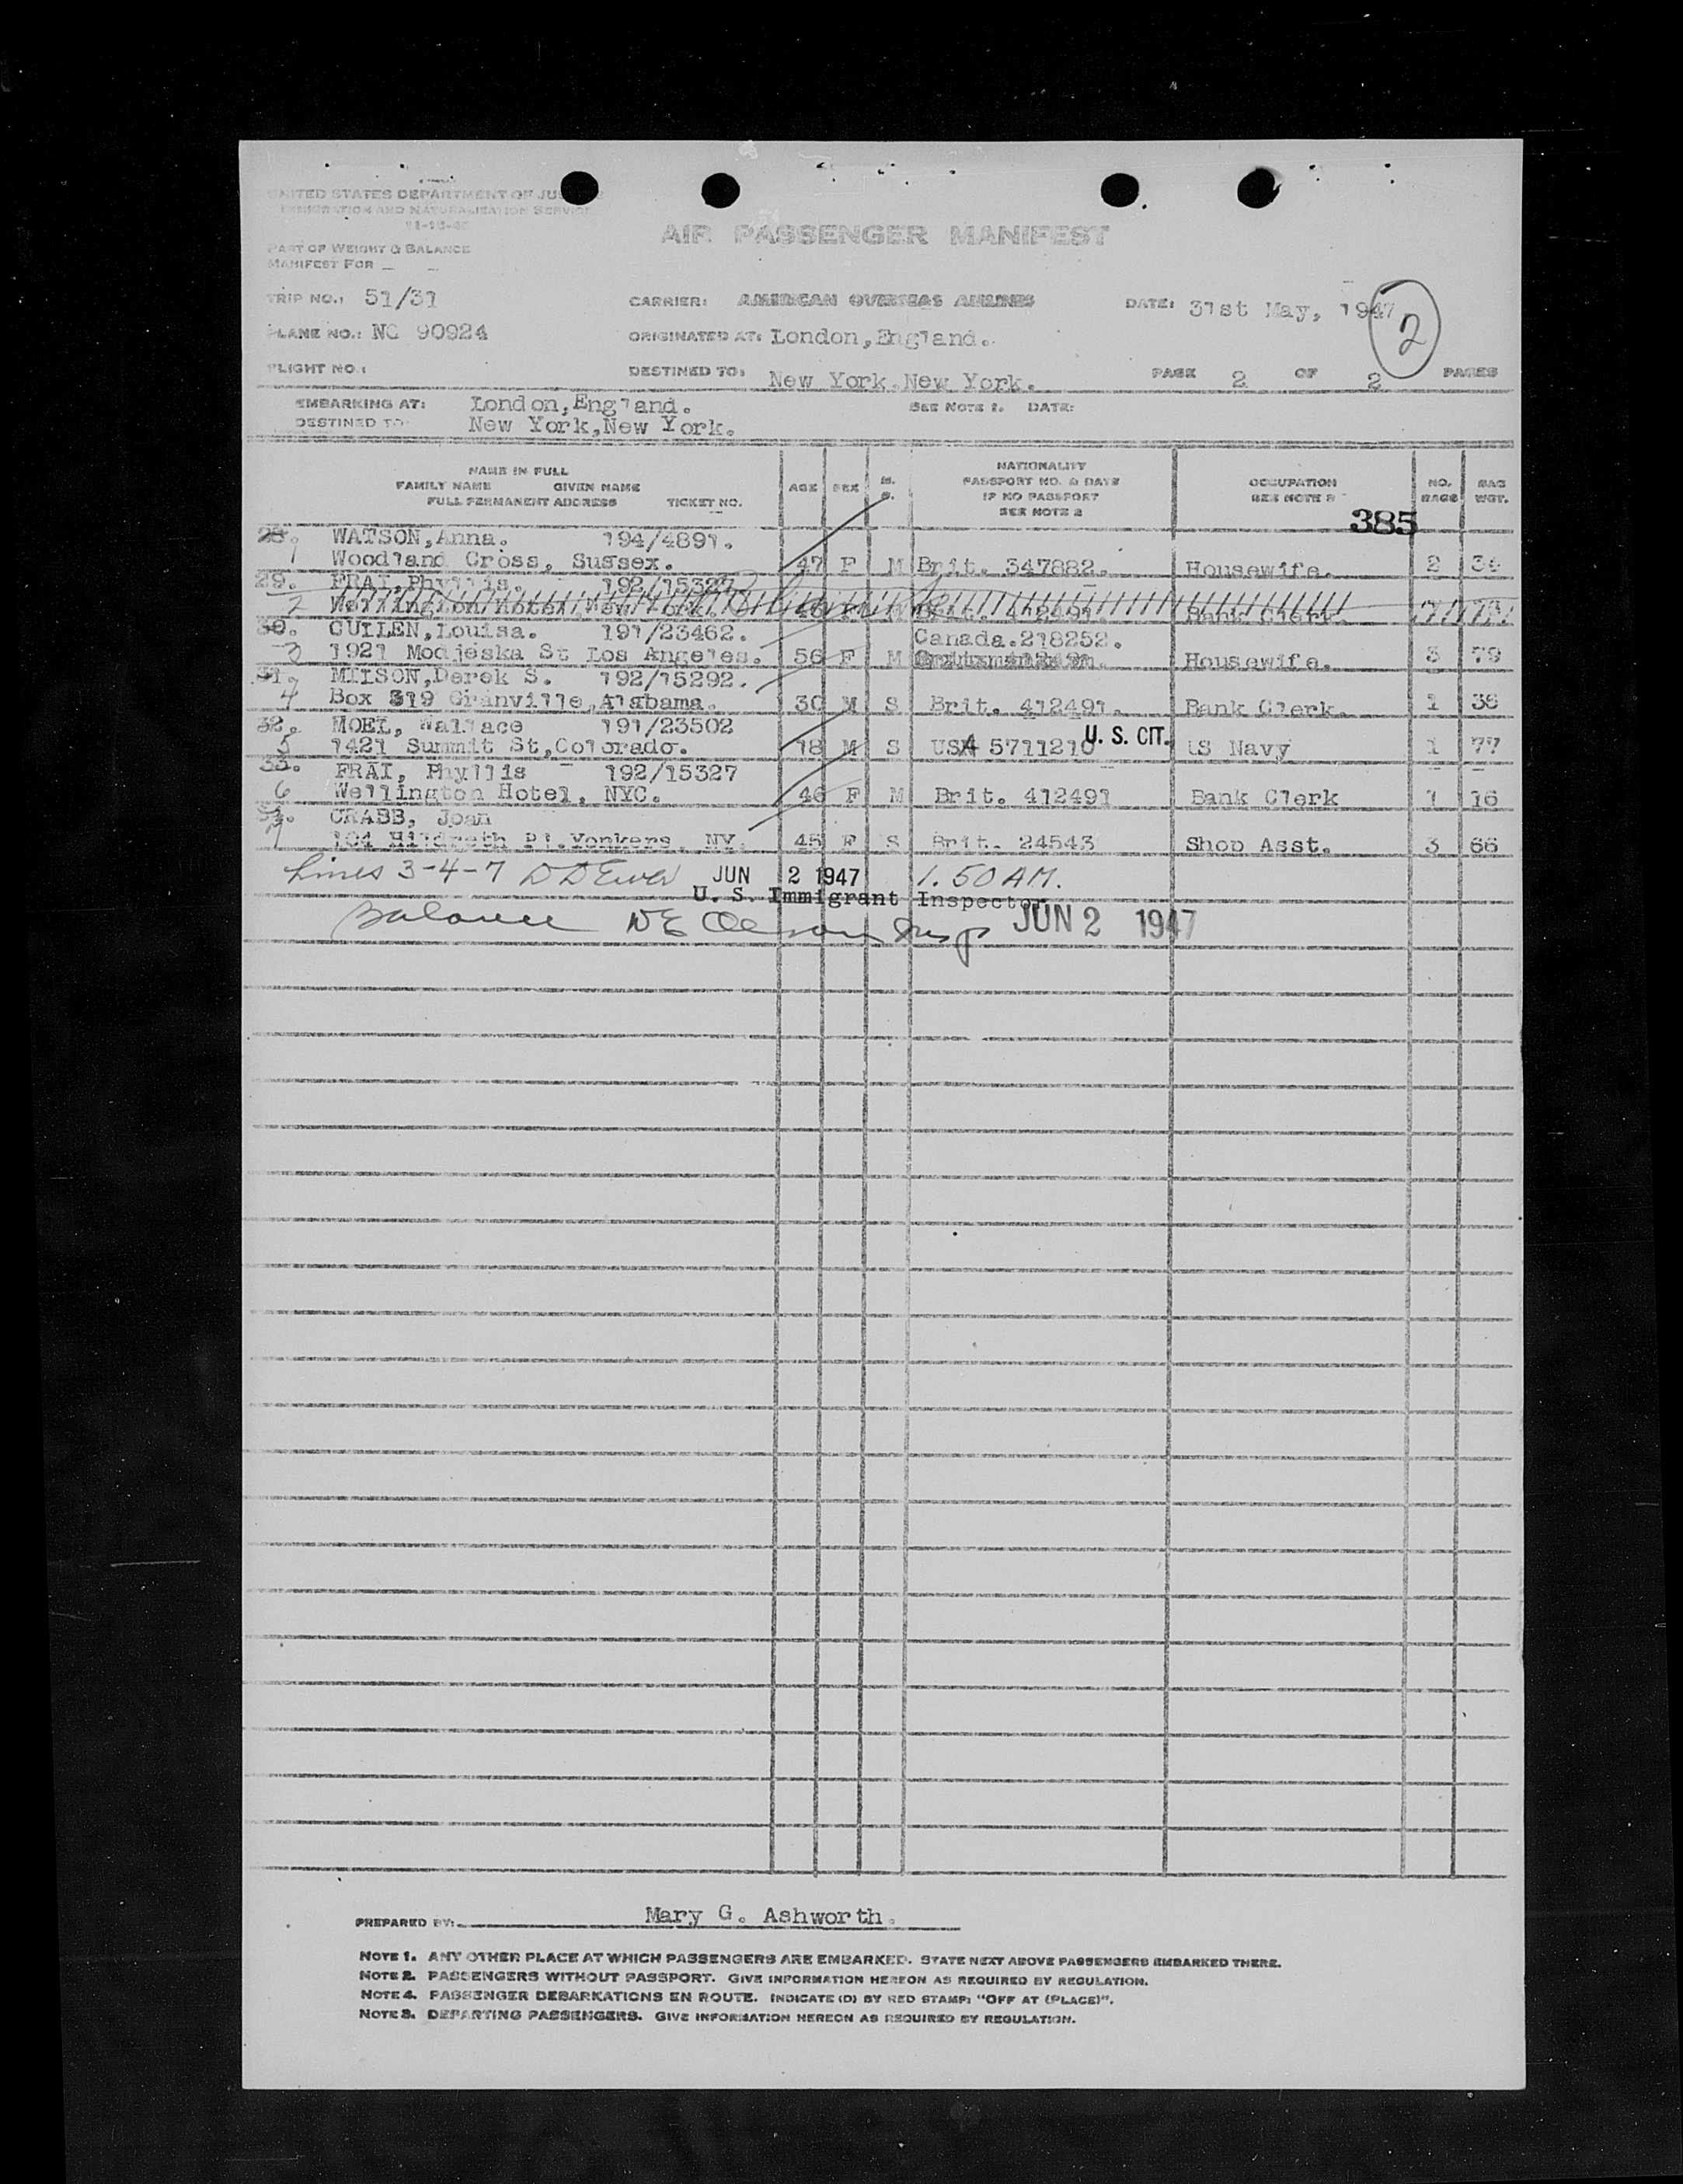 UNITED STATES DEPARTMENT OF JU
IMMIGRATION AND NATURALIZATION SERVICE
AIR PASSENGER MANIFEST
PART OF WEIGHT & BALANCE
MANIFEST FOR
TRIP NO.: 51/31
CARRIER: AMERICAN OVERSEAS AIRLINES
DATE: 31st May, 1947
2
PLANE NO.: NC 90924
ORIGINATED AT: London,England.
FLIGHT NO.:
DESTINED TO: New York.New York.
PAGE 2 OF 2 PAGES
EMBARKING AT: London,England.
SEE NOTE 1. DATE:
DESTINED TO: New York,New York.
NAME IN FULL
FAMILY NAME GIVEN NAME
FULL PERMANENT ADDRESS TICKET NO.
AGE SEX M. S.
NATIONALITY
PASSPORT NO. & DATE
IF NO PASSPORT
SEE NOTE 2
OCCUPATION
SEE NOTE
NO. BAGS
BAG WGT.
385
28. WATSON,Anna. 194/4891.
1 Woodland Cross, Sussex. 47 F M Brit. 347882. Housewife. 2 34
29. FRAI,Phyllis. 192/15327
2 Wellington Hotel, New York. Brit. 412491. Bank Clerk.
30. CULLEN,Louisa. 191/23462. Canada.218252.
3 1921 Modjeska St Los Angeles. 56 F M Housewife. 3 79
31. MILSON,Derek S. 192/15292.
4 Box 319 Granville,Alabama. 30 M S Brit. 412491. Bank Clerk. 1 38
32. MOEL, Wallace 191/23502
5 1421 Summit St,Colorado. 18 M S USA 5711210 U. S. CIT. US Navy 1 77
33. FRAI, Phyllis 192/15327
6 Wellington Hotel, NYC. 46 F M Brit. 412491 Bank Clerk 1 16
34. CRABB, Joan
7 104 Hildreth Pl.Yonkers, NY. 45 F S Brit. 24543 Shop Asst. 3 66
Lines 3-4-7 JUN 2 1947 1.50 AM.
U. S. Immigrant Inspector
Balance Insp JUN 2 1947
PREPARED BY: Mary G. Ashworth.
NOTE 1. ANY OTHER PLACE AT WHICH PASSENGERS ARE EMBARKED. STATE NEXT ABOVE PASSENGERS EMBARKED THERE.
NOTE 2. PASSENGERS WITHOUT PASSPORT. GIVE INFORMATION HEREON AS REQUIRED BY REGULATION.
NOTE 4. PASSENGER DEBARKATIONS EN ROUTE. INDICATE (D) BY RED STAMP: "OFF AT (PLACE)".
NOTE 3. DEPARTING PASSENGERS. GIVE INFORMATION HEREON AS REQUIRED BY REGULATION.